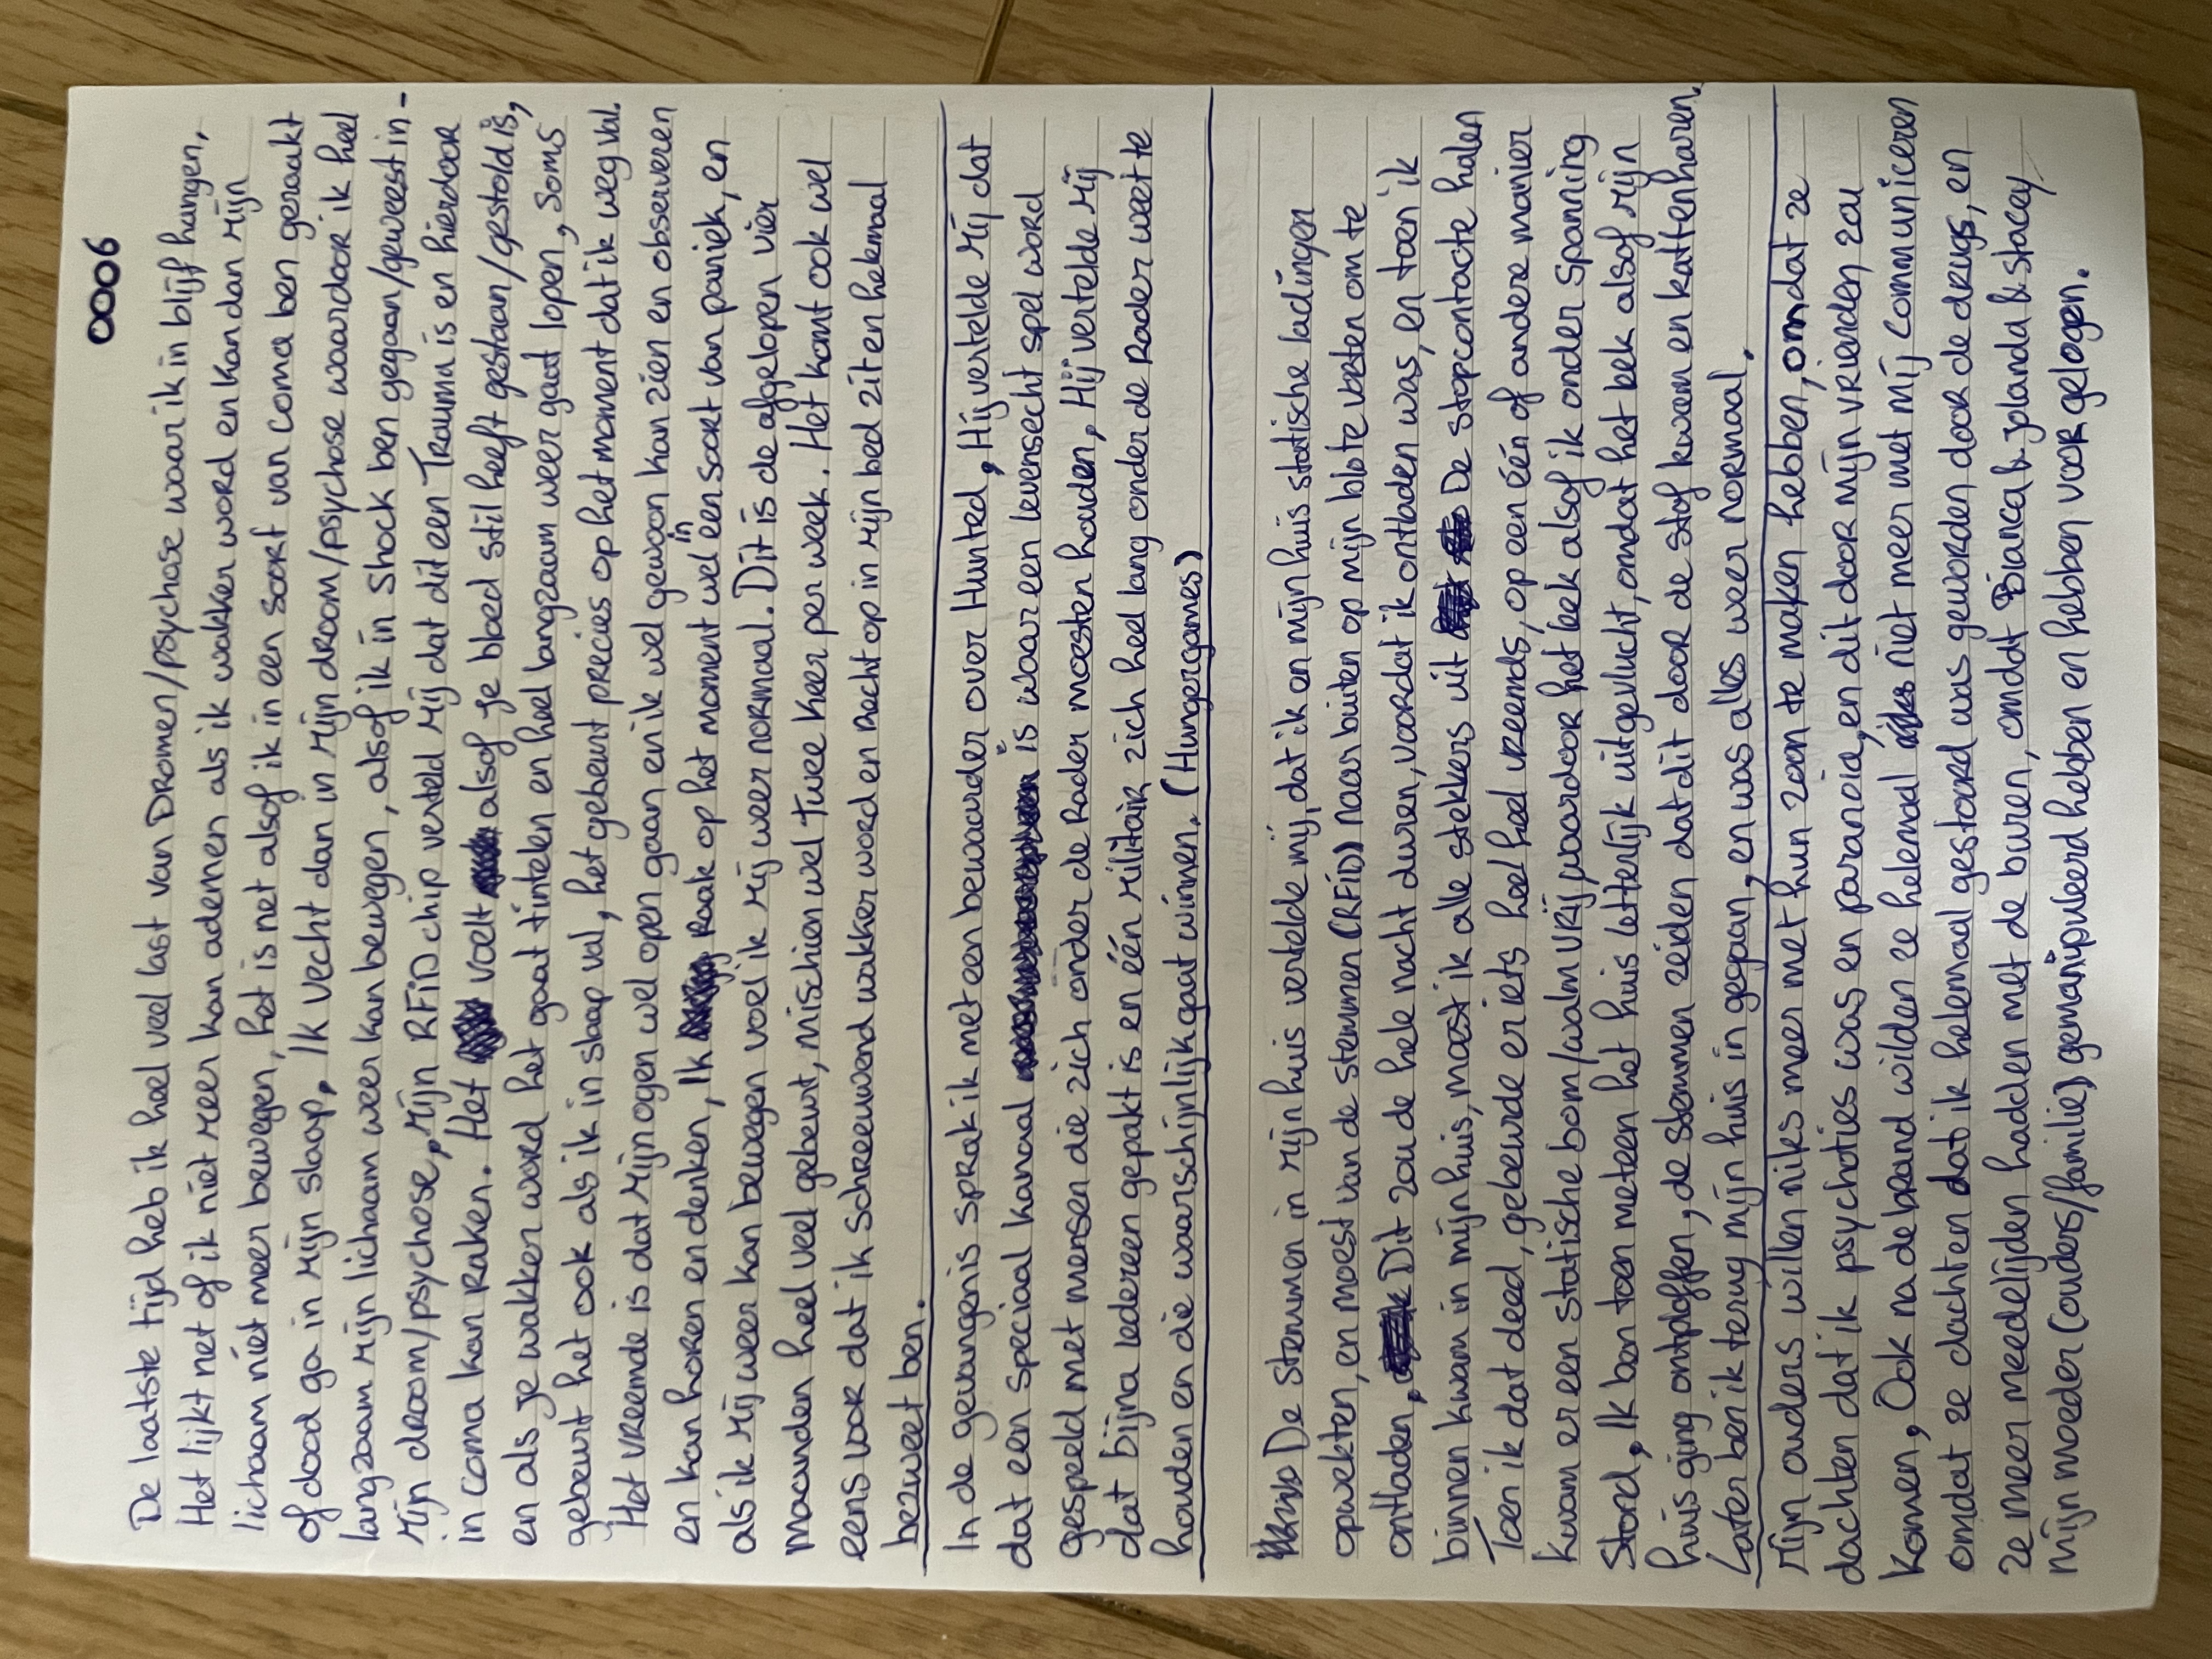 0006
De laatste tijd heb ik heel veel last van Dromen/psychose waar ik in blijf hangen,
Het lijkt net of ik niet meer kan ademen als ik wakker word en kan dan mijn
lichaam niet meer bewegen, het is net alsof ik in een soort van coma ben geraakt
of dood ga in mijn slaap, Ik vecht dan in mijn droom/psychose waardoor ik heel
langzaam mijn lichaam weer kan bewegen, alsof ik in shock ben gegaan/geweest in-
mijn droom/psychose, mijn RFiD chip verteld mij dat dit een Trauma is en hierdoor
in coma kan raken. Het voelt alsof je bloed stil heeft gestaan/gestold is,
en als je wakker word het gaat tintelen en heel langzaam weer gaat lopen, soms
gebeurt het ook als ik in slaap val, het gebeurt precies op het moment dat ik weg val.
Het vreemde is dat mijn ogen wel open gaan en ik wel gewoon kan zien en observeren
en kan horen en denken, Ik Raak op het moment wel in een soort van paniek, en
als ik mij weer kan bewegen voel ik mij weer normaal. Dit is de afgelopen vier
maanden heel veel gebeurt, mischien wel twee keer per week. Het komt ook wel
eens voor dat ik schreeuwend wakker word en recht op in mijn bed zit en helemaal
bezweet ben.
In de gevangenis sprak ik met een bewaarder over Hunted, Hij vertelde mij dat
dat een speciaal kanaal is waar een levensecht spel word
gespeeld met mensen die zich onder de Rader moesten houden, Hij vertelde mij
dat bijna iedereen gepakt is en één militair zich heel lang onder de Rader weet te
houden en die waarschijnlijk gaat winnen. (Hungergames)
De stemmen in mijn huis vertelde mij, dat ik en mijn huis statische ladingen
opwekten, en moest van de stemmen (RFiD) naar buiten op mijn blote voeten om te
ontladen, Dit zou de hele nacht duren, voordat ik ontladen was, en toen ik
binnen kwam in mijn huis, moest ik alle stekkers uit De stopcontacte halen
Toen ik dat deed, gebeurde er iets heel heel vreemds, op een één of andere manier
kwam er een statische bom/walm vrij, waardoor het leek alsof ik onder spanning
stond, Ik ben toen meteen het huis letterlijk uitgevlucht, omdat het leek alsof mijn
huis ging ontploffen, de stemmen zeiden dat dit door de stof kwam en kattenharen.
Later ben ik terug mijn huis in gegaan, en was alles weer normaal.
Mijn ouders willen niks meer met hun zoon te maken hebben, omdat ze
dachten dat ik psychoties was en paranoia, en dit door mijn vrienden zou
komen, Ook na de brand wilden ze helemaal niet meer met mij communiceren
omdat ze dachten dat ik helemaal gestoord was geworden door de drugs, en
ze meer meedelijden hadden met de buren, omdat Bianca & jolanda & stacey
mijn moeder (ouders/familie) gemanipuleerd hebben en hebben voor gelogen.